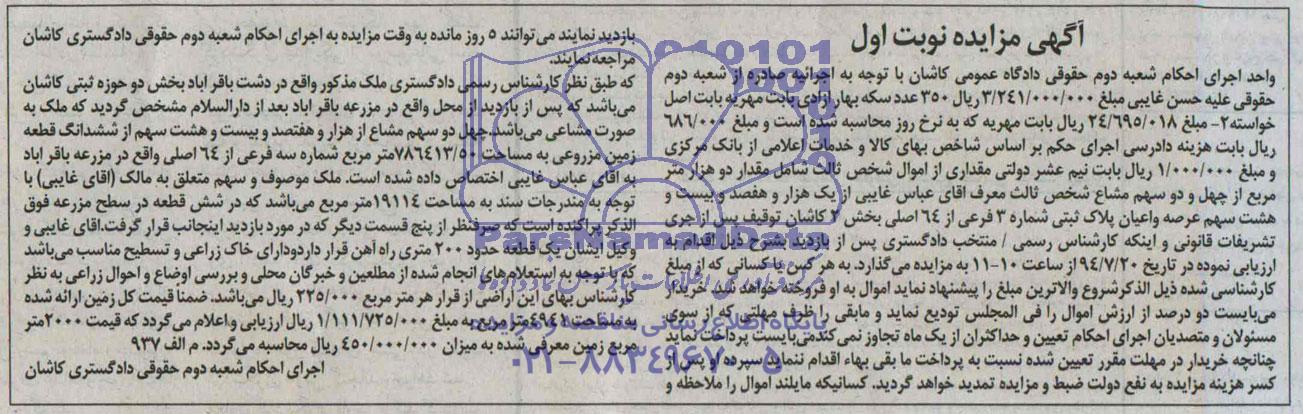 آگهی مزایده نوبت اول
واحد اجرای احکام شعبه دوم حقوقی دادگاه عمومی کاشان با توجه به اجرائیه صادره از شعبه دوم
حقوقی علیه حسن غایبی مبلغ ۳/۲۴۱/۰۰۰/۰۰۰ ریال ۳۵۰ عدد سکه بهار آزادی بابت مهریه بابت اصل
خواسته ۲- مبلغ ۲۴/۶۹۵/۰۱۸ ریال بابت مهریه که به نرخ روز محاسبه شده است و مبلغ ۶۸۶/۰۰۰
ریال بابت هزینه دادرسی اجرای حکم بر اساس شاخص بهای کالا و خدمات اعلامی از بانک مرکزی
و مبلغ ۱/۰۰۰/۰۰۰ ریال بابت نیم عشر دولتی مقداری از اموال شخص ثالث شامل مقدار دو هزار متر
مربع از چهل و دو سهم مشاع شخص ثالث معرف اقای عباس غایبی از یک هزار و هفصد و بیست و
هشت سهم عرصه واعیان پلاک ثبتی شماره ۳ فرعی از ۶۴ اصلی بخش ۲ کاشان توقیف پس از جری
تشریفات قانونی و اینکه کارشناس رسمی / منتخب دادگستری پس از بازدید بشرح ذیل اقدام به
ارزیابی نموده در تاریخ ۹۴/۷/۲۰ از ساعت ۱۰-۱۱ به مزایده می‌گذارد. به هر کس یا کسانی که از مبلغ
کارشناسی شده ذیل الذکر شروع والاترین مبلغ را پیشنهاد نماید اموال به او فروخته خواهد شد. خریدار
می‌بایست دو درصد از ارزش اموال را فی المجلس تودیع نماید و مابقی را ظرف مهلتی که از سوی
مسئولان و متصدیان اجرای احکام تعیین و حداکثر از یک ماه تجاوز نمی کند می‌بایست پرداخت نماید
چنانچه خریدار در مهلت مقرر تعیین شده نسبت به پرداخت ما بقی بهاء اقدام ننماید سپرده او پس از
کسر هزینه مزایده به نفع دولت ضبط و مزایده تمدید خواهد گردید. کسانیکه مایلند اموال را ملاحظه و
بازدید نمایند می‌توانند ۵ روز مانده به وقت مزایده به اجرای احکام شعبه دوم حقوقی دادگستری کاشان
مراجعه نمایند.
که طبق نظر کارشناس رسمی دادگستری ملک مذکور واقع در دشت باقر اباد بخش دو حوزه ثبتی کاشان
می‌باشد که پس از بازدید از محل واقع در مزرعه باقر اباد بعد از دارالسلام مشخص گردید که ملک به
صورت مشاعی می‌باشد. چهل دو سهم مشاع از هزار و هفتصد و بیست و هشت سهم از ششدانگ قطعه
زمین مزروعی به مساحت ۷۸۶۴۱۳/۵۰ متر مربع شماره سه فرعی از ۶۴ اصلی واقع در مزرعه باقر اباد
به اقای عباس غایبی اختصاص داده شده است. ملک موصوف و سهم متعلق به مالک (اقای غایبی) با
توجه به مندرجات سند به مساحت ۱۹۱۱۴ متر مربع می‌باشد که در شش قطعه در سطح مزرعه فوق
الذکر پراکنده است که صرفنظر از پنج قسمت دیگر که در مورد بازدید اینجانب قرار گرفت. اقای غایبی و
وکیل ایشان یک قطعه حدود ۲۰۰ متری راه آهن قرار دارد و دارای خاک زراعی و تسطیح مناسب می‌باشد
که با توجه به استعلام‌های انجام شده از مطلعین و خبرگان محلی و بررسی اوضاع و احوال زراعی به نظر
کارشناس بهای این اراضی از قرار هر متر مربع ۲۲۵/۰۰۰ ریال می‌باشد. ضمنا قیمت کل زمین ارائه شده
به مساحت ۴۹۴۱ متر مربع به مبلغ ۱/۱۱۱/۷۲۵/۰۰۰ ریال ارزیابی و اعلام می‌گردد که قیمت ۲۰۰۰ متر
مربع زمین معرفی شده به میزان ۴۵۰/۰۰۰/۰۰۰ ریال محاسبه می‌گردد. م الف ۹۳۷
اجرای احکام شعبه دوم حقوقی دادگستری کاشان
ParsNamadData
پایگاه اطلاع رسانی مناقصه و مزایده
۰۲۱-۸۸۳۴۹۶۷۰-۵